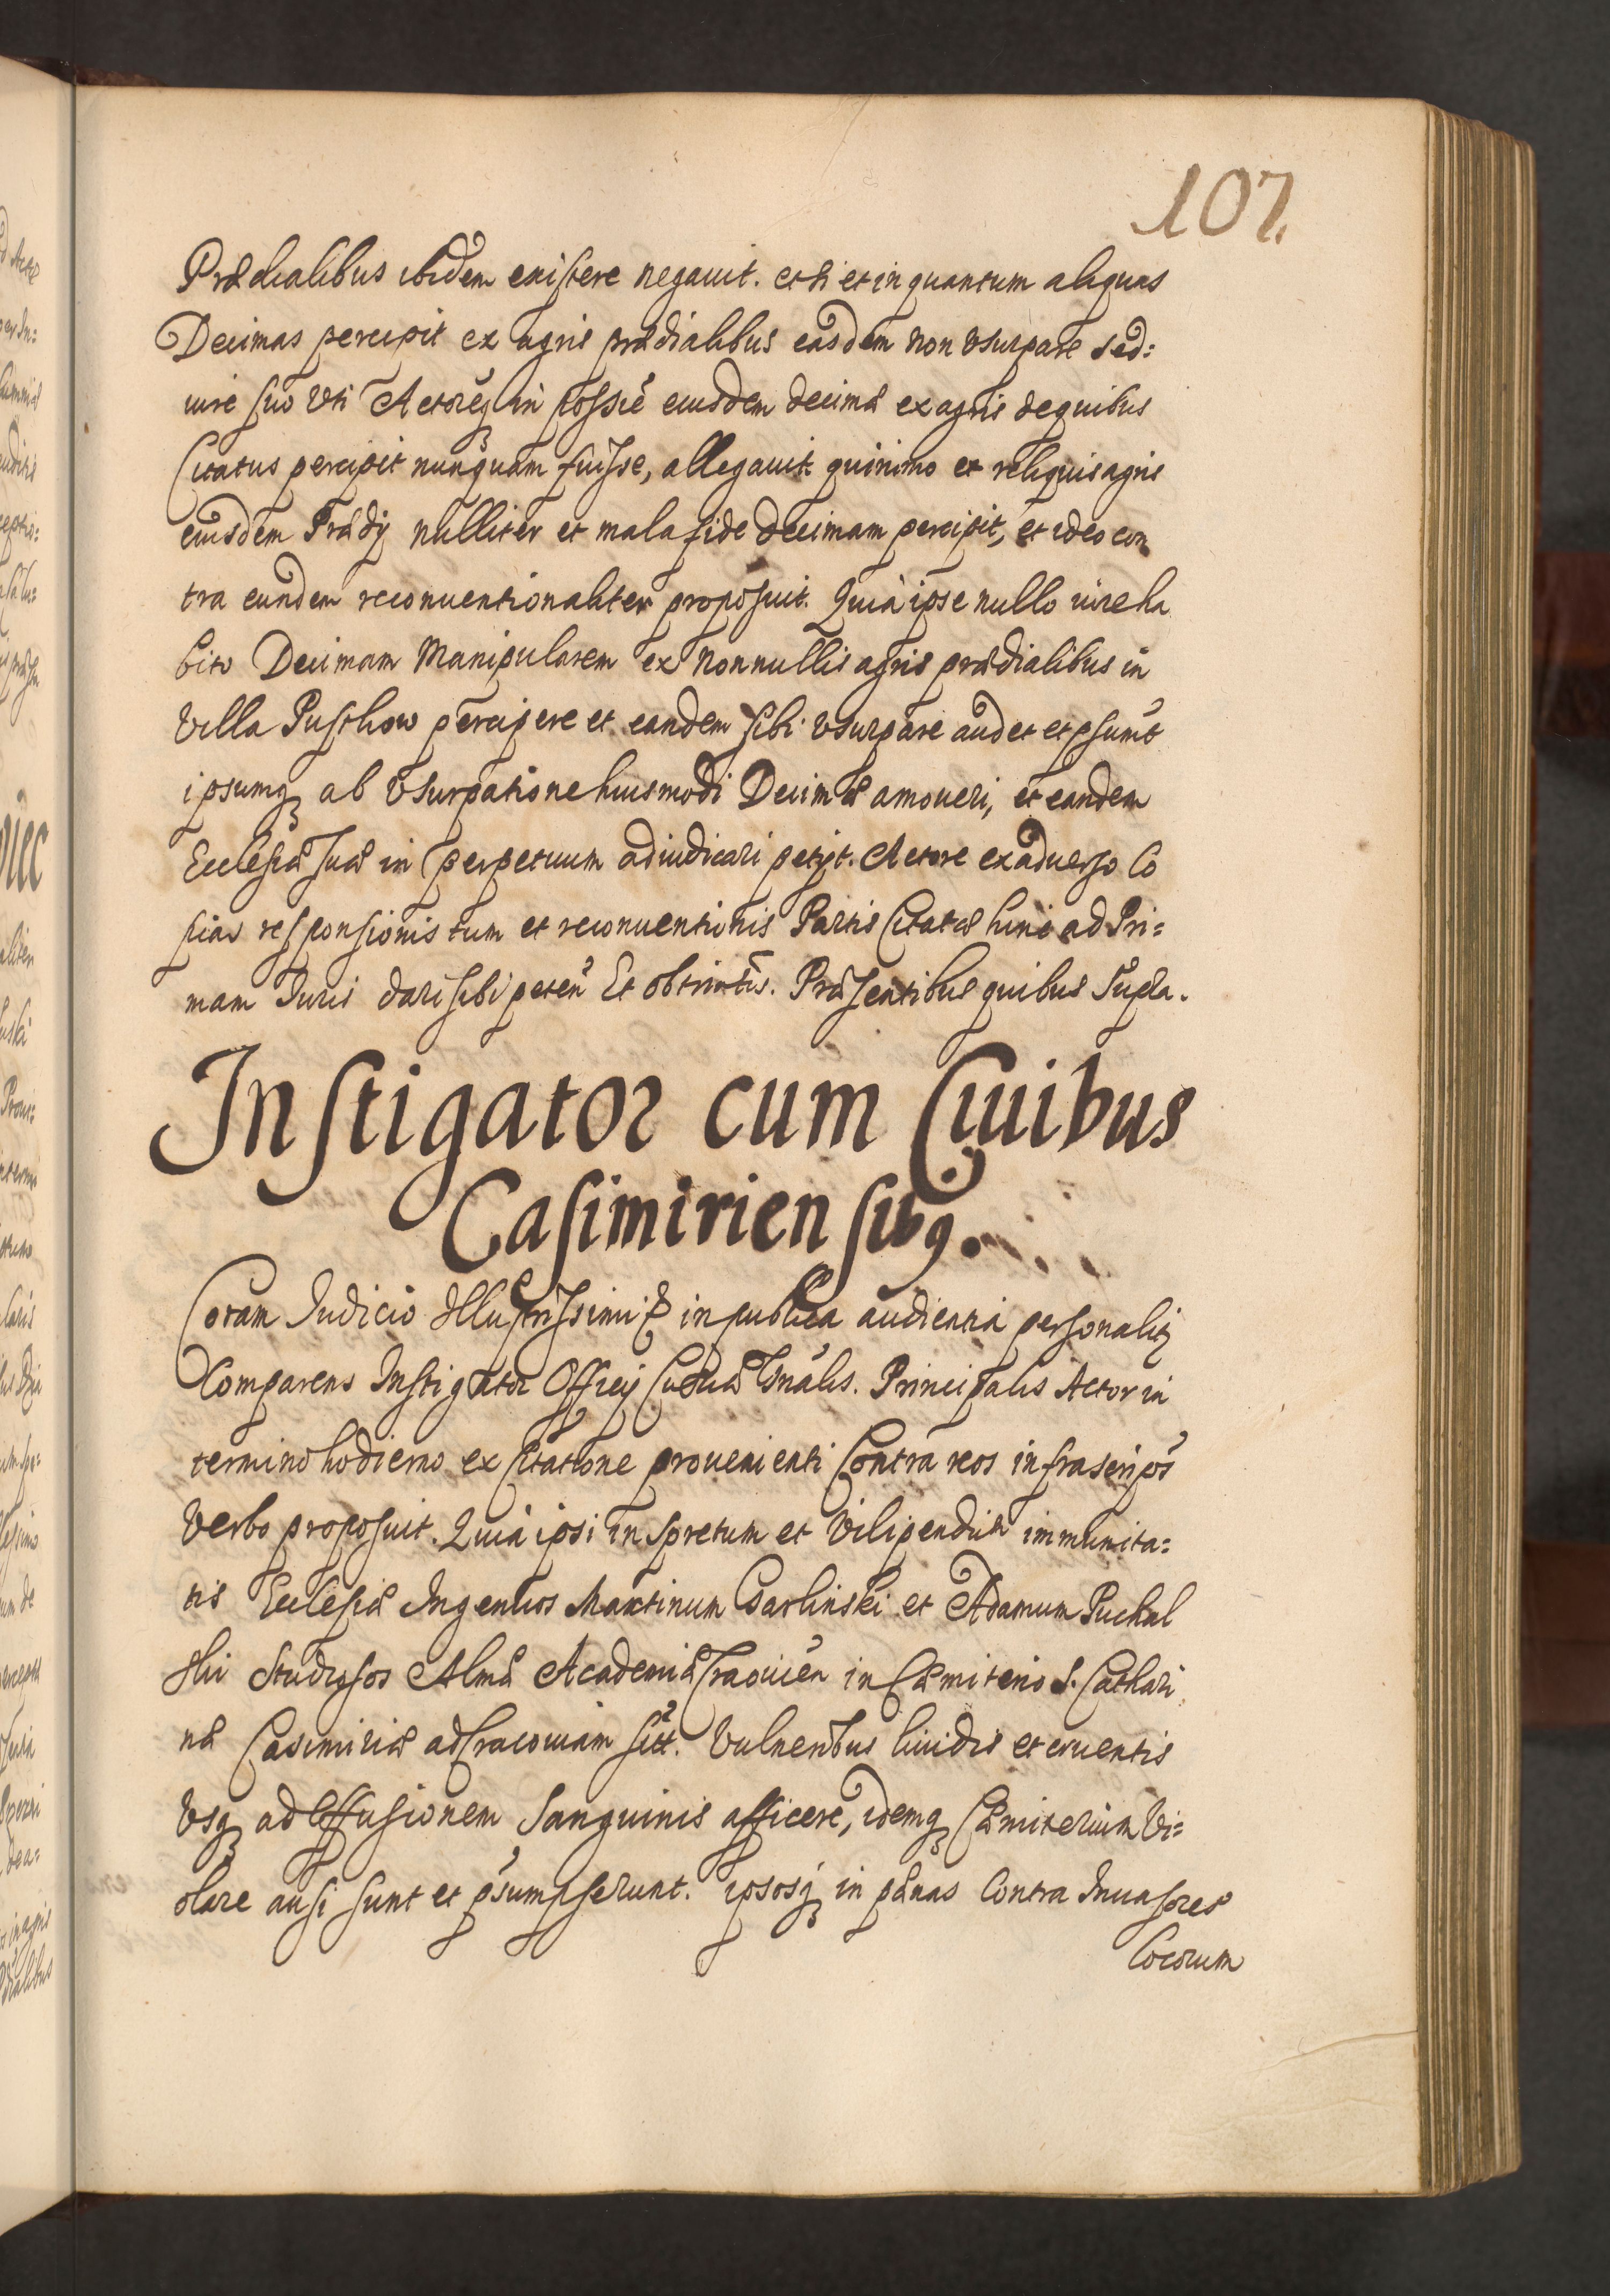 107.
Prædialibus ibidem existere negauit. et si et in quantum aliquas
Decimas percipit ex agris prædialibus easdem non vsurpare sed:
iure suo vti Actoreq in possie eiusdem decimæ ex agris de quibus
Citatus percipit nunquam fuisse, allegauit quinimo et reliquis agris
eiusdem Prædij nulliter et mala fide decimam percipit, et ideo con
tra eundem reconuentionaliter proposuit. Quia ipse nullo iure ha
bito Decimam Manipularem ex nonnullis agris prædialibus in
Villa Pusthow percipere et eandem sibi vsurpare audet et psumit
ipsumq ab vsurpatione huiusmodi Decimæ amoueri, et eandem
Ecclesiæ suæ in perpetuum adiudicari petijt. Actore ex aduerso Co
pias responsionis tum et reconuentionis Partis Citatæ hinc ad Pri=
mam Iuris dari sibi peten Et obtinetis. Præsentibus quibus Supra.
Instigator cum Ciuibus
Casimiriensibq.
Coram Iudicio Illustrissimi in publica audientia personalit
Comparens Instigator Officij Curiæ Gnalis. Principalis Actor in
termino hodierno ex citatione prouenienti Contra reos infrascripos
verbo proposuit. Quia ipsi in spretum et Vilipendiu immunita=
tis Ecclesiæ Ingenuos Martinum Garlinski et Adamum Puchal
ski Studiosos Almæ Academiæ Cracouien in Cæmiterio S. Cathari
næ Casimiriæ ad Cracouiam sitt. Vulneribus liuidis et cruentis
Vsq ad effusionem Sanguinis afficere, idemq Cæmiterium Vi=
olare ausi sunt et psumpserunt. ipsosq in pænas Contra Inuasores
Locorum